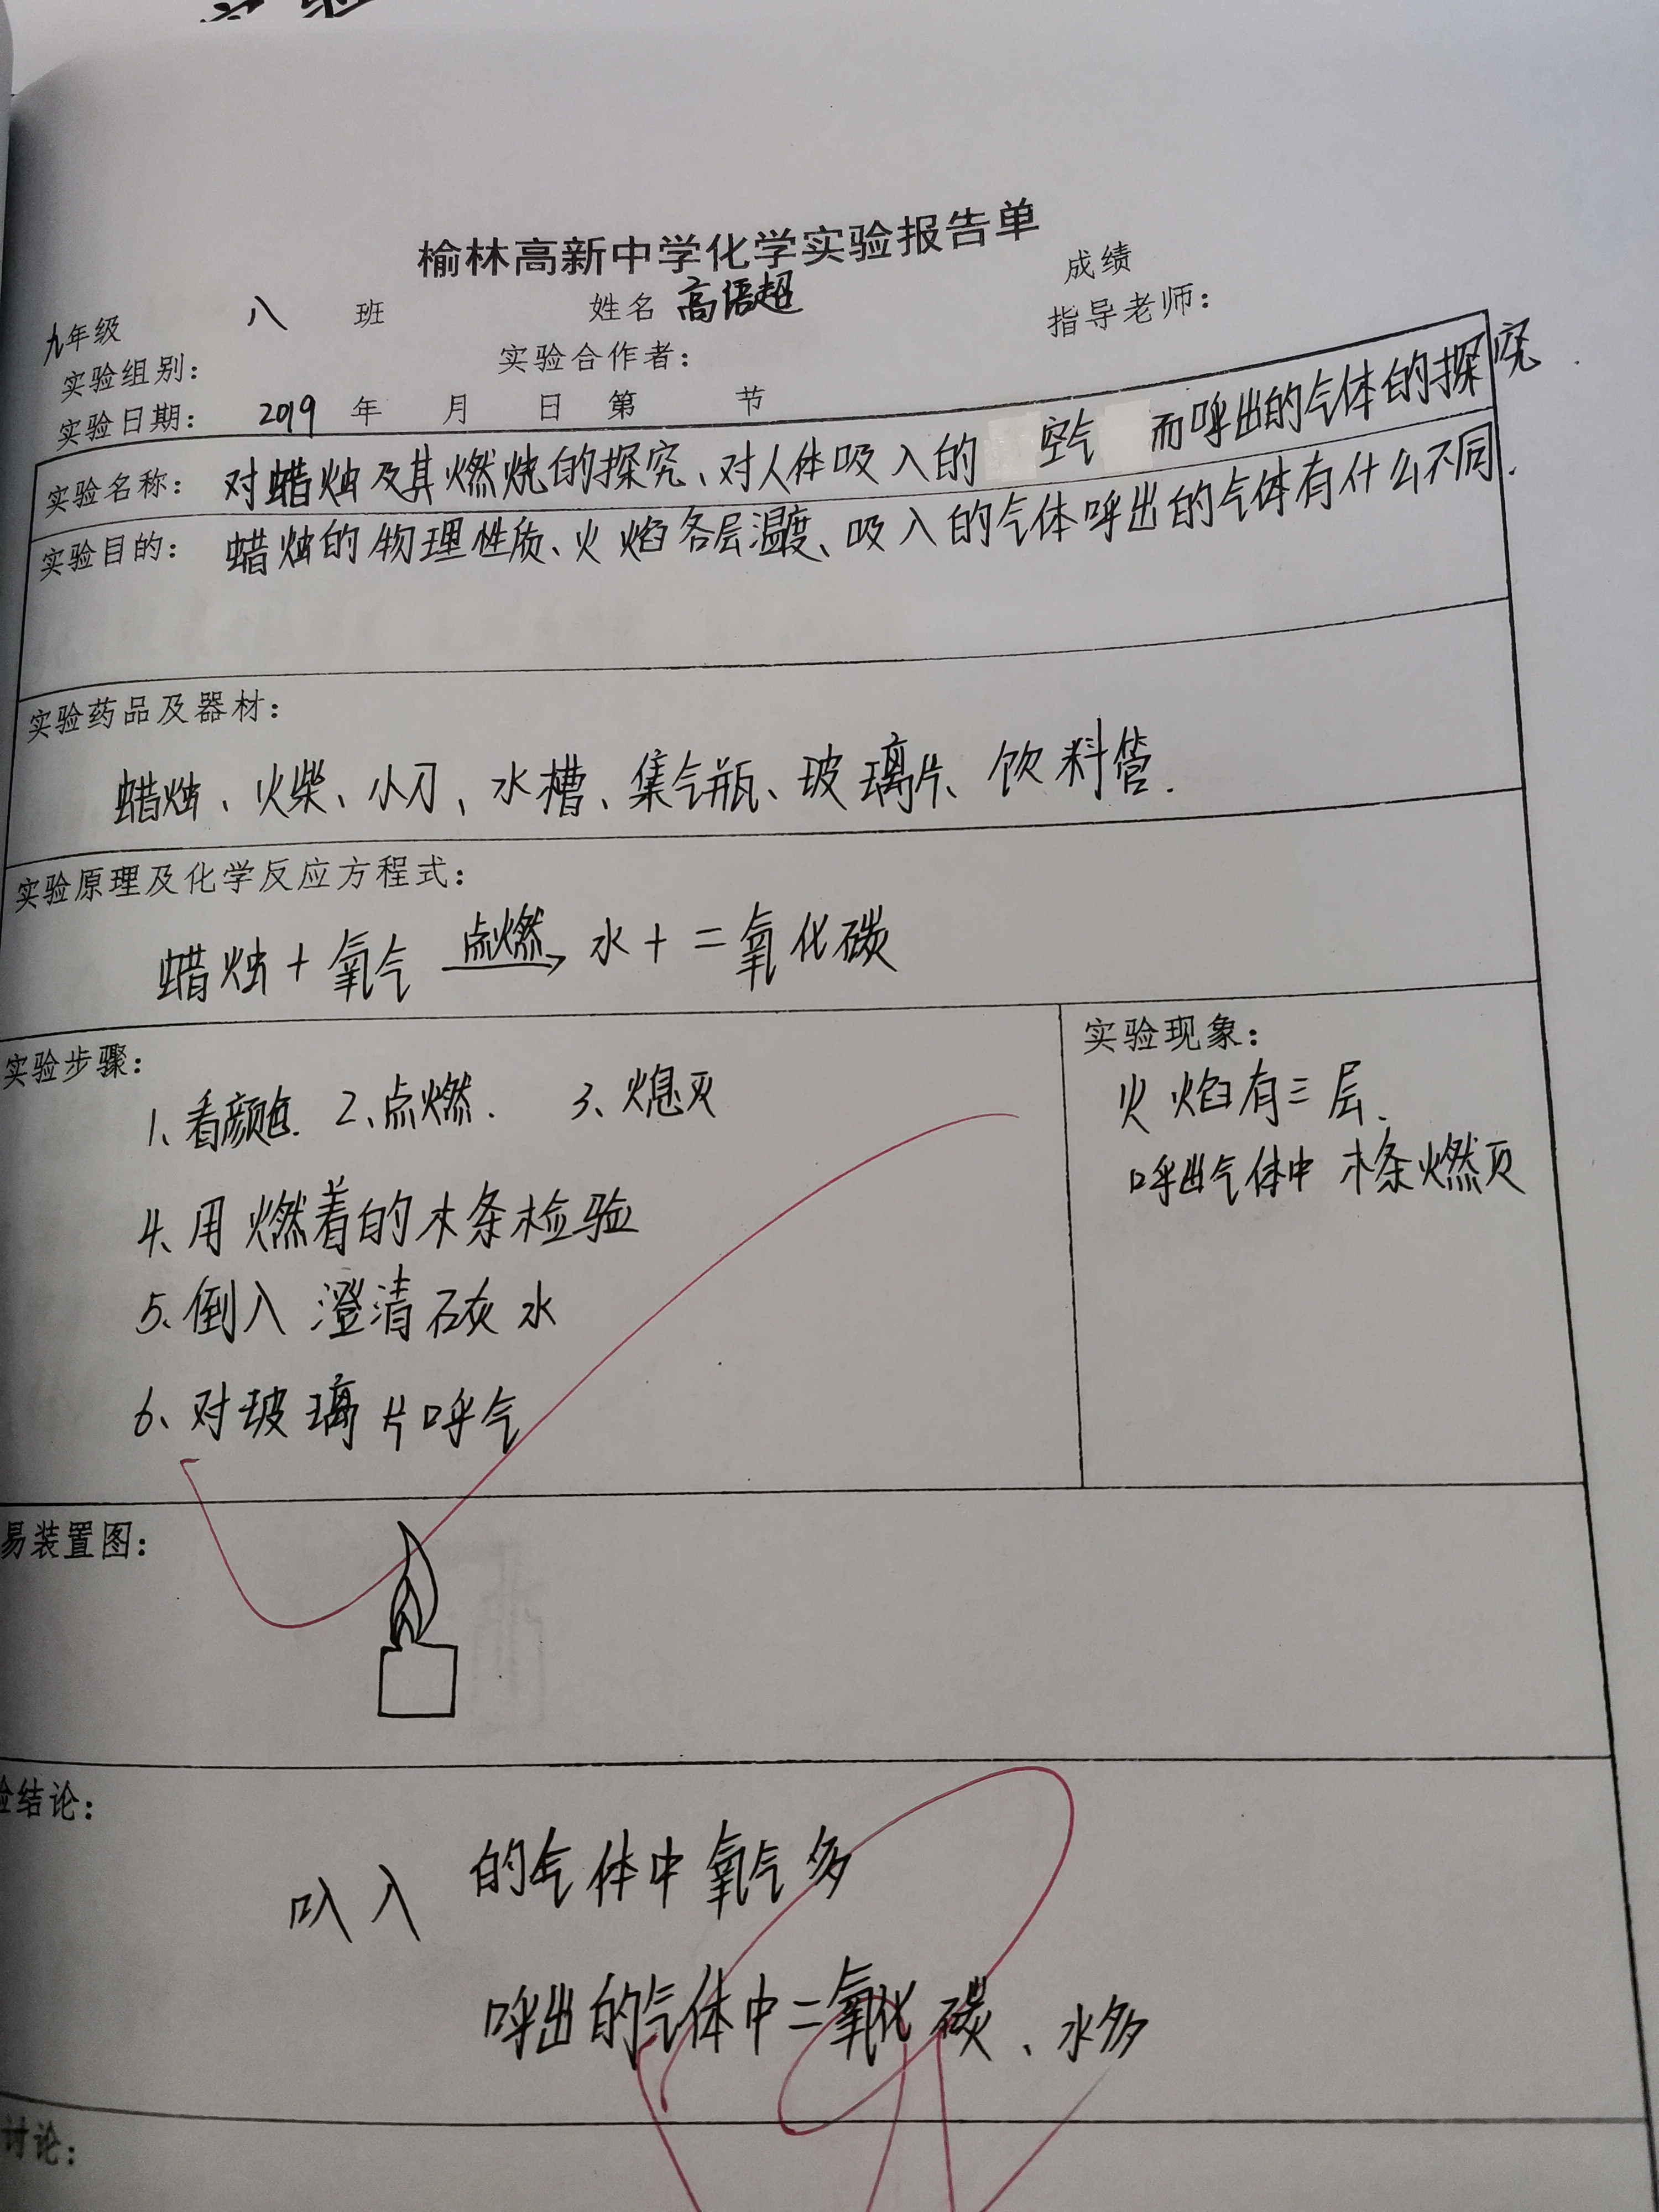 榆林高新中学化学实验报告单
九年级 八 班 姓名 高语超 成绩
实验组别： 实验合作者： 指导老师：
实验日期： 2019 年 月 日 第 节
实验名称： 对蜡烛及其燃烧的探究、对人体吸入的空气而呼出的气体的探究.
实验目的： 蜡烛的物理性质、火焰各层温度、吸入的气体呼出的气体有什么不同.
实验药品及器材：
蜡烛、火柴、小刀、水槽、集气瓶、玻璃片、饮料管.
实验原理及化学反应方程式：
蜡烛+氧气 点燃→ 水+二氧化碳
实验步骤：
1、看颜色. 2、点燃. 3、熄灭
4、用燃着的木条检验
5、倒入澄清石灰水
6、对玻璃片呼气
实验现象：
火焰有三层.
呼出气体中木条燃灭
易装置图：
验结论：
吸入的气体中氧气多
呼出的气体中二氧化碳、水多
讨论：